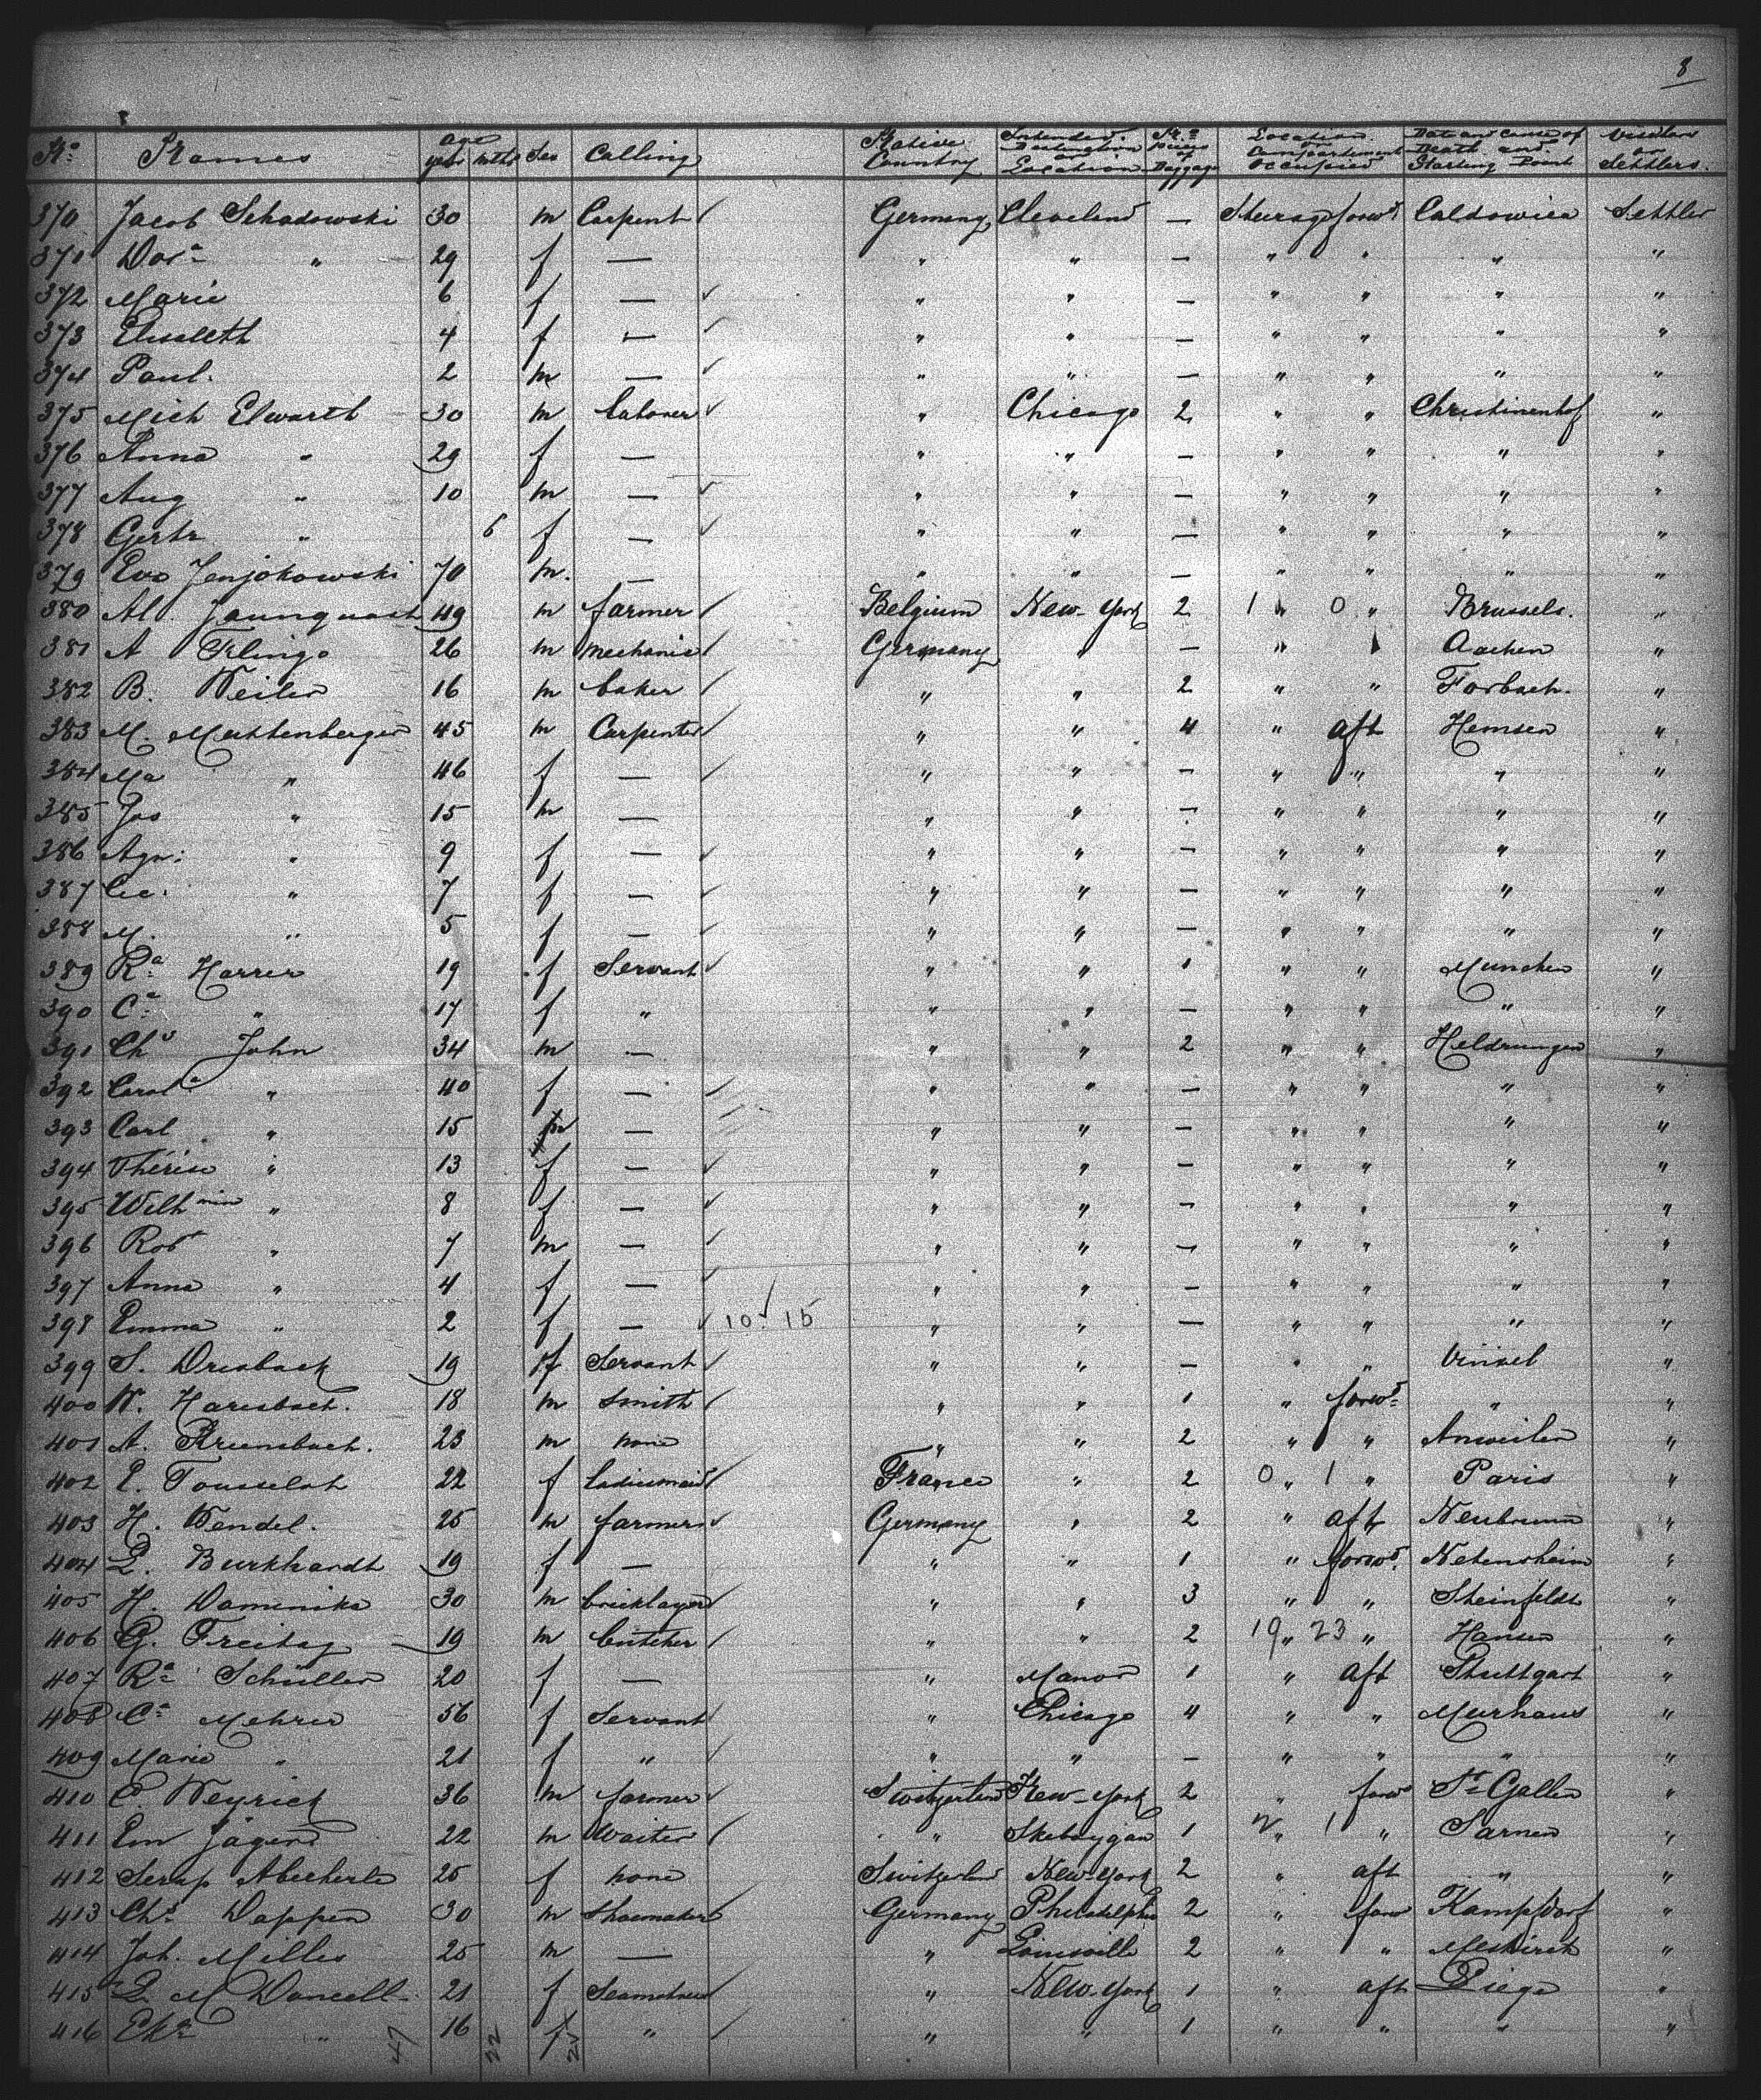 8
No. Names Age years mths Sex Calling Native Country Intended Destination or Location No. pieces of Baggage Location or Compartement Occupied Date and Cause of Death and Starting Point Visitors or Settlers.
370 Jacob Schadowski 30 m Carpent Germany Cleveland — Steerage forwd Caldowica Settler
371 Dora " 29 f — " " — " " " "
372 Marie 6 f — " " — " " " "
373 Elisabeth 4 f — " " — " " " "
374 Paul. 2 m — " " — " " " "
375 Mich Elwarth 30 m Laborer " Chicago 2 " " Christinenhof "
376 Anna " 29 f — " " — " " " "
377 Aug " 10 m — " " — " " " "
378 Gertr " 6 f — " " — " " " "
379 Eva Jenjokowski 70 m. — " " — " " " "
380 Al. Jaunquast 49 m farmer Belgium New-York 2 1 " 0 " Brussels. "
381 A Klinge 26 m mechanic Germany " — " " Aachen "
382 B. Weiler 16 m baker " " 2 " " Forbach. "
383 M. Mechtenberger 45 m Carpenter " " 4 " aft Hemsen "
384 Ma " 46 f — " " — " " " "
385 Jos " 15 m — " " — " " " "
386 Agn: " 9 f — " " — " " " "
387 Cec: " 7 f — " " — " " " "
388 M. " 5 f — " " — " " " "
389 Ra Harrer 19 f Servant " " 1 " " Munchen "
390 Ca " 17 f " " " — " " " "
391 Chs John 34 m — " " 2 " " Heldrungen "
392 Carola " 40 f — " " — " " " "
393 Carl " 15 m — " " — " " " "
394 Thérèse " 13 f — " " — " " " "
395 Wilhmin " 8 f — " " — " " " "
396 Robt " 7 m — " " — " " " "
397 Anna " 4 f — " " — " " " "
398 Emma " 2 f — 10 15 " " — " " " "
399 S. Dresbach 19 f Servant " " — " " Vinxel "
400 W. Haresbach. 18 m Smith " " 1 " forwd " "
401 A. Kriensbach. 23 m none " " 2 " " Anweiler "
402 E. Tousselot 22 f Ladiesmaid France " 2 0 " 1 " Paris "
403 H. Wendel. 25 m farmer Germany " 2 " aft Neubrunn "
404 L. Burkhardt 19 f — " " 1 " forwd Netensheim "
405 H. Damenika 30 m bricklayer " " 3 " " Steinfeldt "
406 G. Freitag 19 m butcher " " 2 19 " 23 " Hansen "
407 Ra Schüller 20 f — " Manor 1 " aft Stuttgart "
408 Ca Mehrer 56 f Servant " Chicago 4 " " Murhaus "
409 Marie " 21 f " " " — " " " "
410 C Weyrich 36 m farmer Switzerland New-York 2 " forw St Gallen "
411 Em Jäger 22 m Waiter " Skeboygan 1 2 " 1 " Sarnen "
412 Serap Abecherle 25 f none Switzerland New-York 2 " aft " "
413 Chs Dappen 30 m Shoemaker Germany Philadelphia 2 " forw Kampfdorf "
414 Joh. Miller 25 m — " Louisville 2 " " Meskirch "
415 L. M Doncell 21 f Seamstress " New-York 1 " aft Liege "
416 Eka " 16 f " " " 1 " " " "
47 22 25